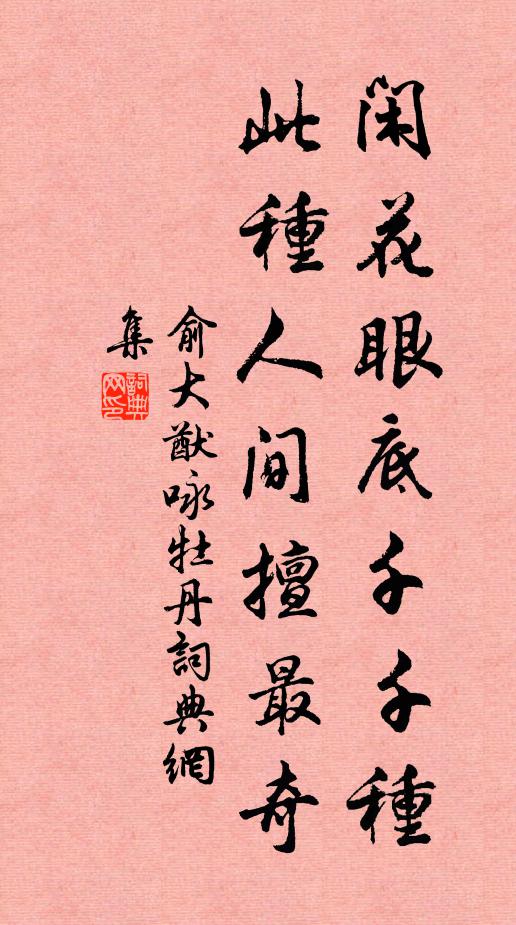 閑花眼底千千種
此種人間擅最奇
俞大猷咏牡丹詞典網
集
詞典
网印